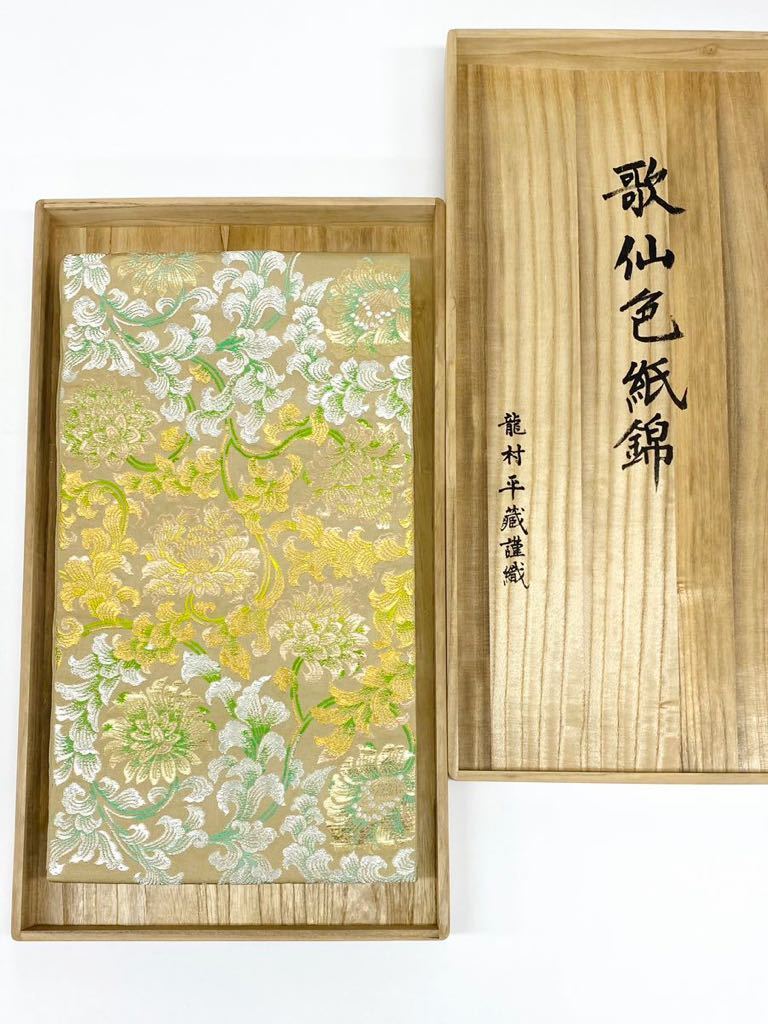 歌仙色紙錦
龍村平藏謹織